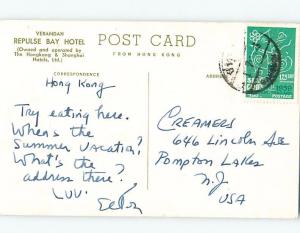 VERANDAH
REPULSE BAY HOTEL
(Owned and operated by
The Hongkong & Shanghai
Hotels, Ltd.)
POST CARD
FROM HONG KONG
CORRESPONDENCE
ADDRESS
Hong Kong
Try eating here.
When's the
Summer vacation?
What's the
address there?
LUV.
CREAMERS
646 Lincoln Ave
Pompton Lakes
N.J.
USA